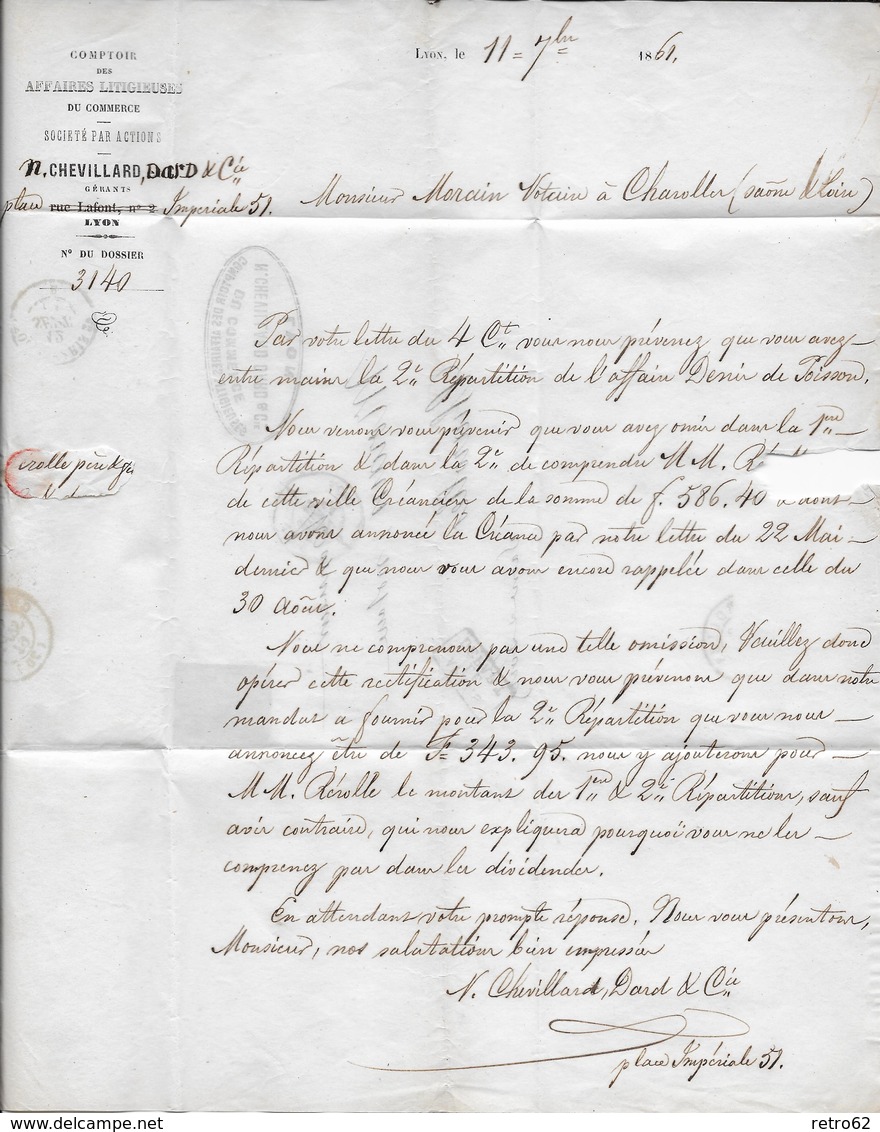 COMPTOIR
DES
AFFAIRES LITIGIEUSES
DU COMMERCE
SOCIÉTÉ PAR ACTIONS
N. CHEVILLARD, DARD & Cie
GÉRANTS
place rue Lafont, n° 2 Impériale 51.
LYON
N° DU DOSSIER
3140
Lyon, le 11 = 7bre 1861.
Monsieur Morain Notaire à Charolles (Saône & Loire)
Par votre lettre du 4 Ct vous nous prévenez que vous avez
entre mains la 2e Répartition de l'affaire Denis de Poisson.
Nous venons vous prévenir que vous avez omis dans la 1ere
Répartition & dans la 2e de comprendre M M. Ré
de cette ville Créanciers de la somme de f. 586.40 dont
nous avons annoncée la Créance par notre lettre du 22 Mai
dernier & que nous vous avons encore rappelée dans celle du
30 Août.
Nous ne comprenons pas une telle omission, Veuillez donc
opérer cette rectification & nous vous prévenons que dans notre
mandat à fournir pour la 2e Répartition que vous nous
annoncez être de F= 343.95. nous y ajouterons pour
M M. Rérolle le montant des 1ere & 2e Répartitions, sauf
avis contraire, qui nous expliquera pourquoi vous ne les
comprenez pas dans les dividendes.
En attendant votre prompte réponse. Nous vous présentons,
Monsieur, nos salutations bien empressées
N. Chevillard, Dard & Cie
place Impériale 51.
erolle père &
delcampe.net
retro62